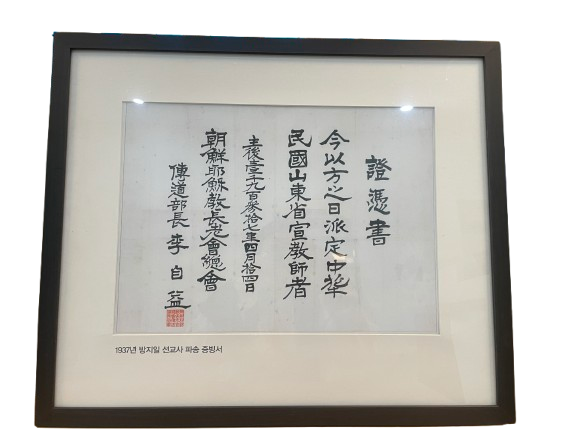 證憑書
今以方之日派定中華
民國山東省宣敎師者
主後壹千九百參拾七年四月拾四日
朝鮮耶穌敎長老會總會
傳道部長 李自益
1937년 방지일 선교사 파송 증빙서